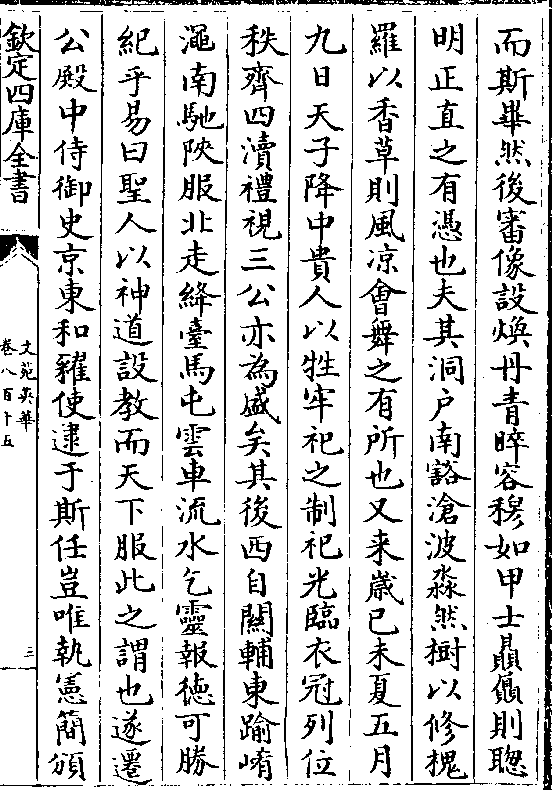 而斯畢然後審像設煥丹青睟容穆如甲士贔屭則聦
明正直之有憑也夫其洞户南豁滄波淼然樹以修槐
羅以香草則風凉會舞之有所也又来嵗己未夏五月
九日天子降中貴人以牲牢祀之制祀光臨衣冠列位
秩齊四瀆禮視三公亦為盛矣其後西自關輔東踰崤
澠南馳陜服北走絳臺馬屯雲車流水乞靈報徳可勝
紀乎易曰聖人以神道設教而天下服此之謂也遂遷
公殿中侍御史京東和糴使逮于斯任豈唯執憲簡頒
欽定四庫全書
文苑英華
卷八百十五
三